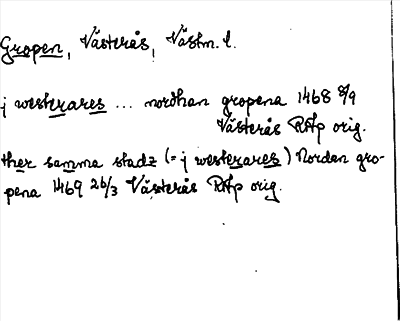 Gropen, Västerås, Västm. l.
j westerares ... nordhan gropena 1468 8/9
Västerås RAp orig.
ther samma stadz (= j westerares) Nordan gro-
pena 1469 26/3 Västerås RAp orig.